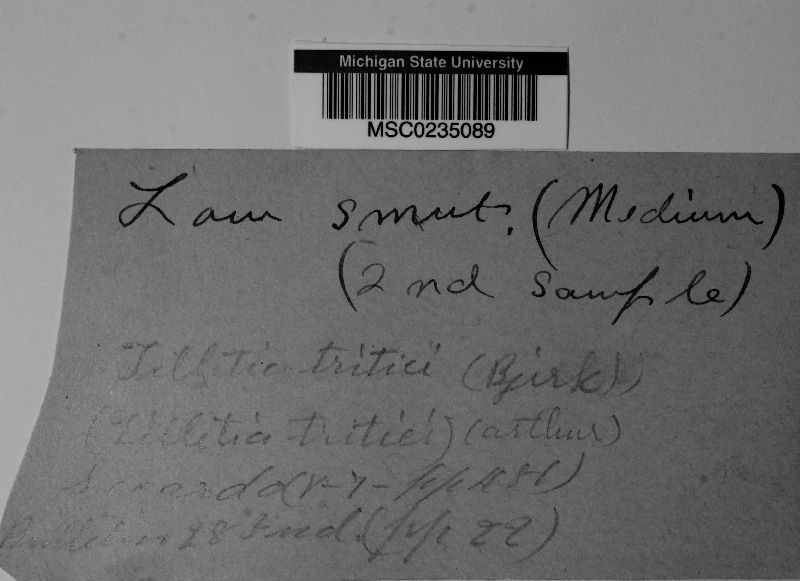 Michigan State University
MSC0235089
Low smut. (Medium)
(2nd sample)
Tilletia tritici (Bjerk)
(Tilletia tritici) (arthur)
Saccardo (V-7-pp 481)
Bulletin 28 Ind. (pp 22)